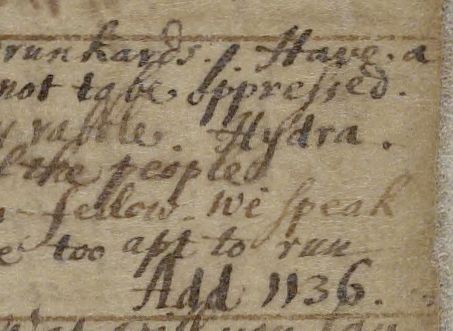 runkards. Have a
not to be oppressed.
rattle. Hydra.
the people
fellow. We speak
too apt to run
Add 1136.